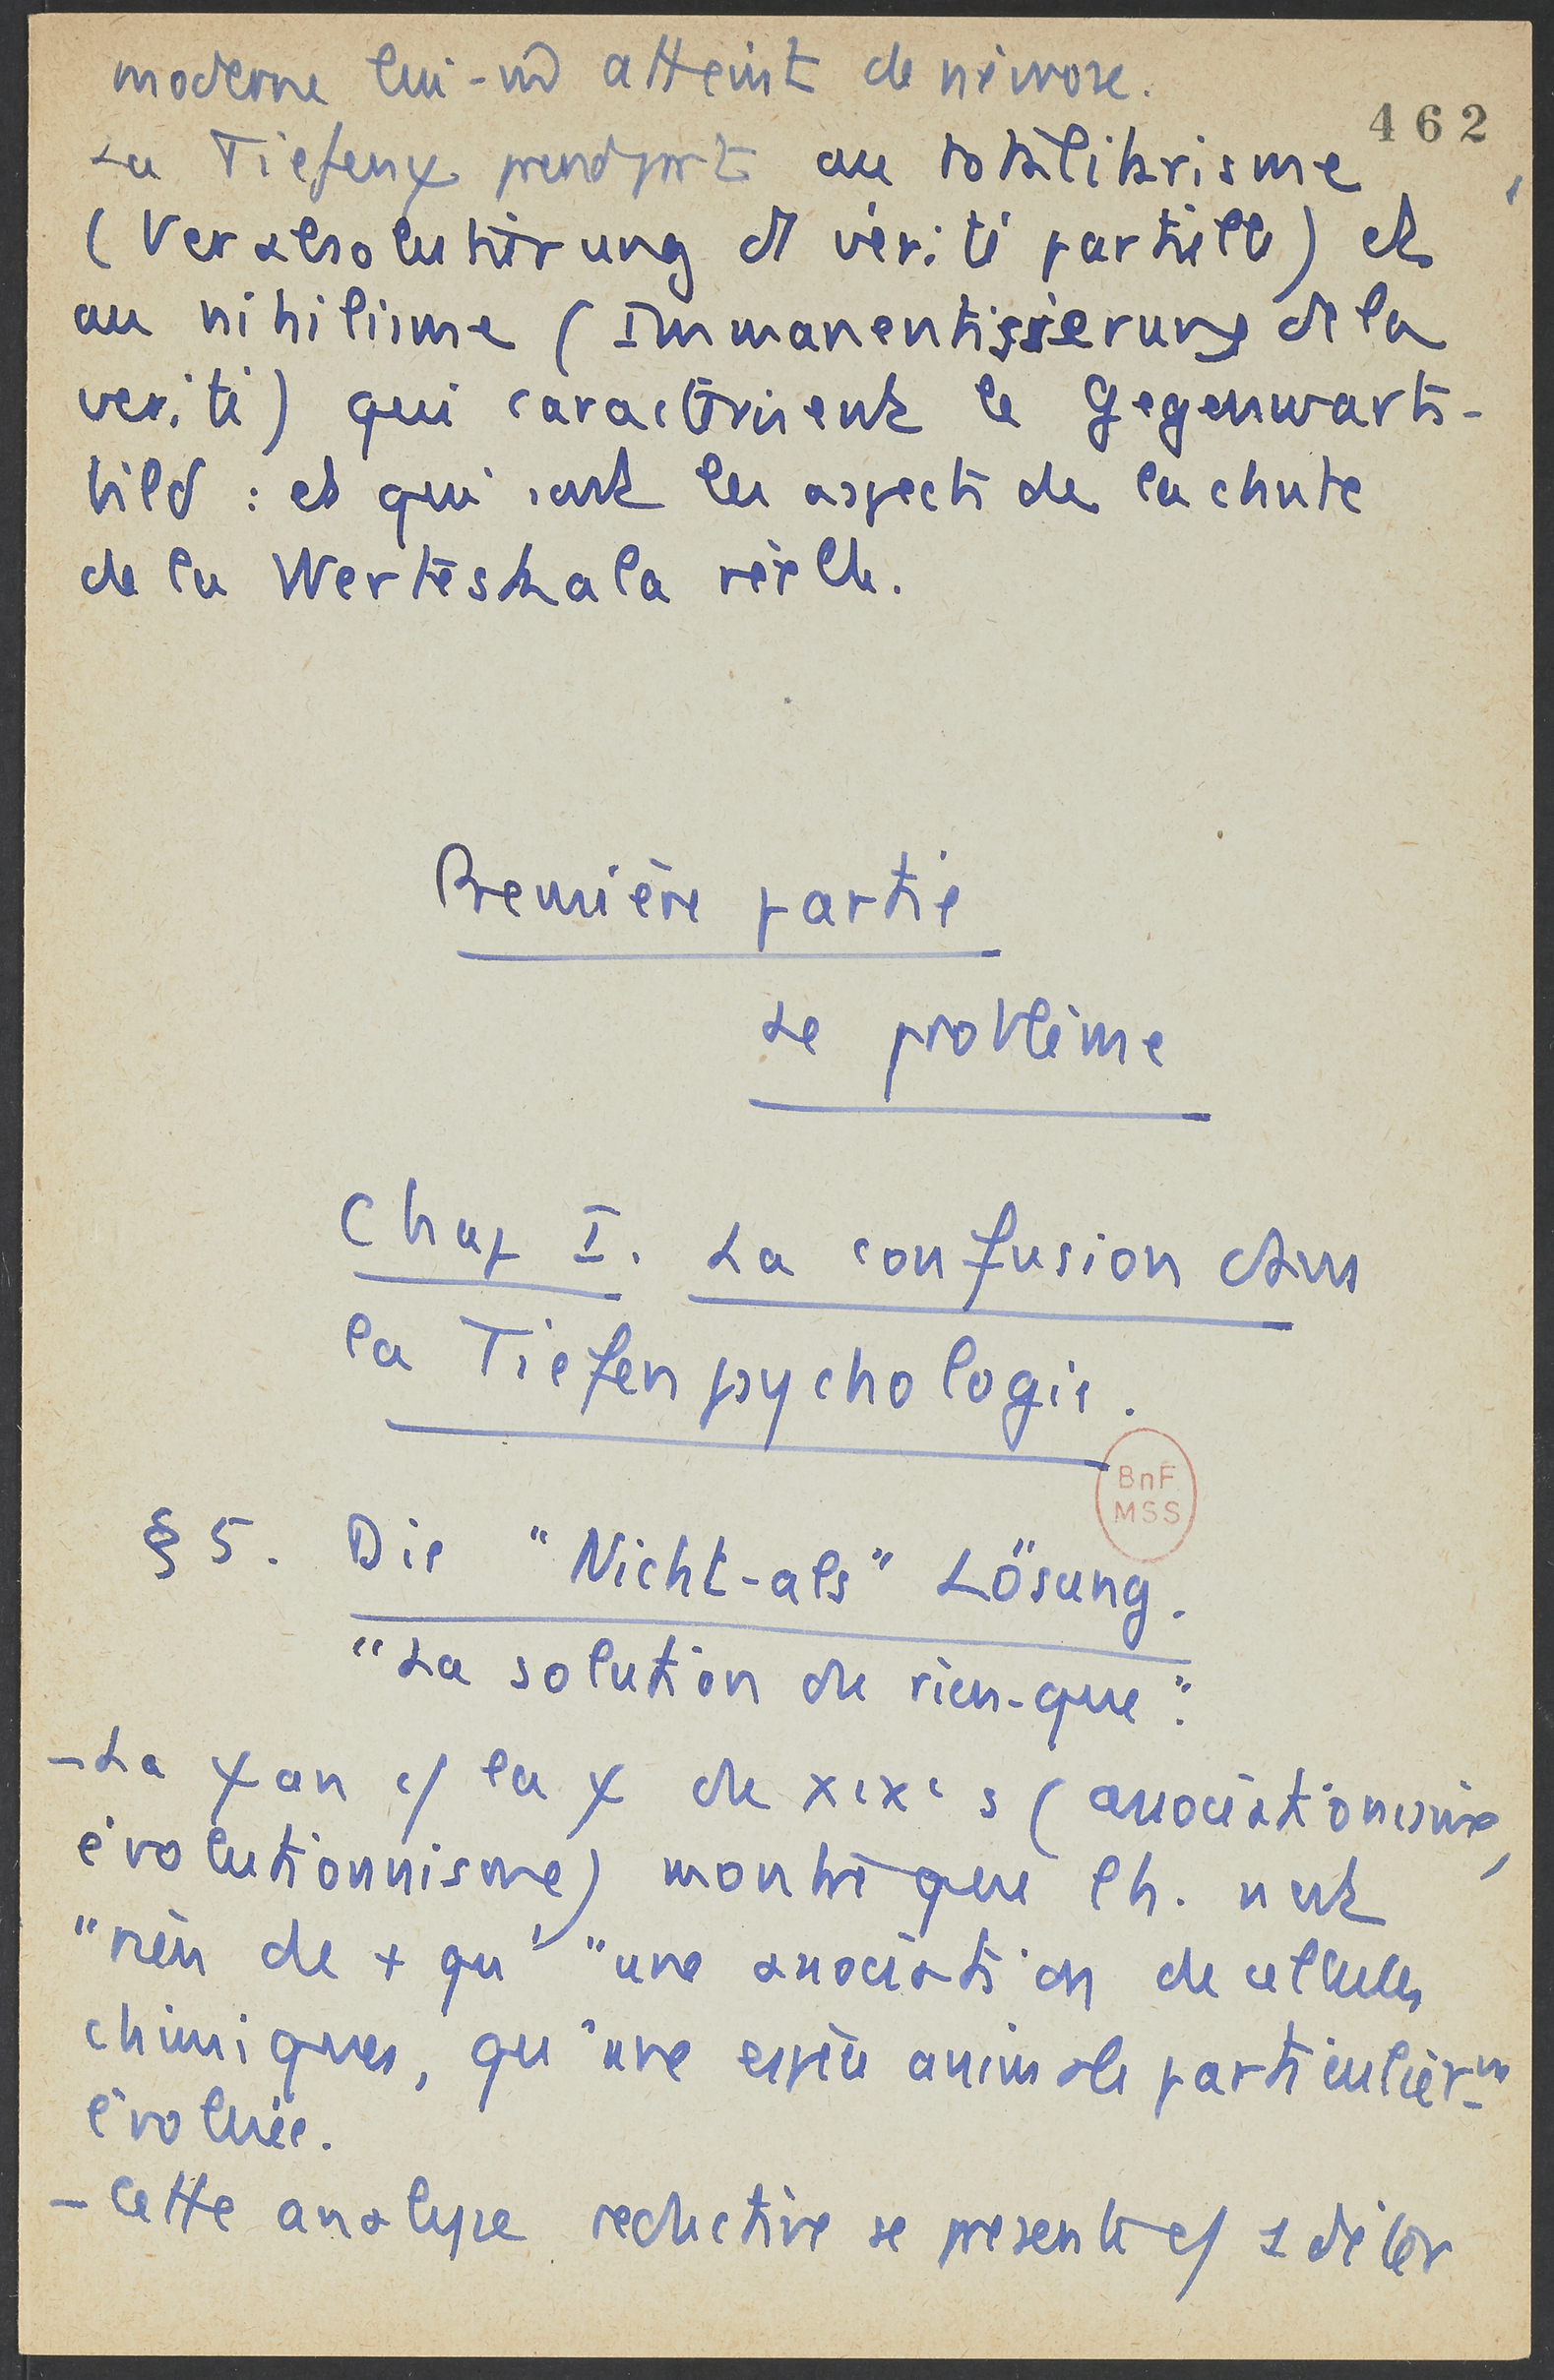 moderne lui-m̂ atteint de névrose.
462
La Tiefenψ prend part au totalitarisme
(Verabsolutierung d vérité partielle) et
au nihilisme (Immanentisierung de la
vérité) qui caractérisent le Gegenwarts-
bild : et qui sont les aspects de la chute
de la Werteskala réelle.
Première partie
Le problème
Chap I. La confusion dans
la Tiefenpsychologie.
BnF
MSS
§ 5. Die "Nicht-als" Lösung.
"La solution du rien-que".
- La ψan c/ la ψ du XIXe s (associationnisme,
évolutionnisme) montre que l'h. n'est
"rien de + qu'" une association de cellules
chimiques, qu'une espèce animale particulièrm
évoluée.
- Cette analyse réductive se présente c/ 1